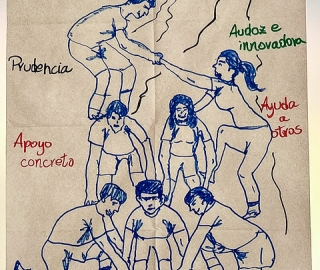 Audaz e
innovadora
Prudencia
Ayuda
a
otros
Apoyo
concreto